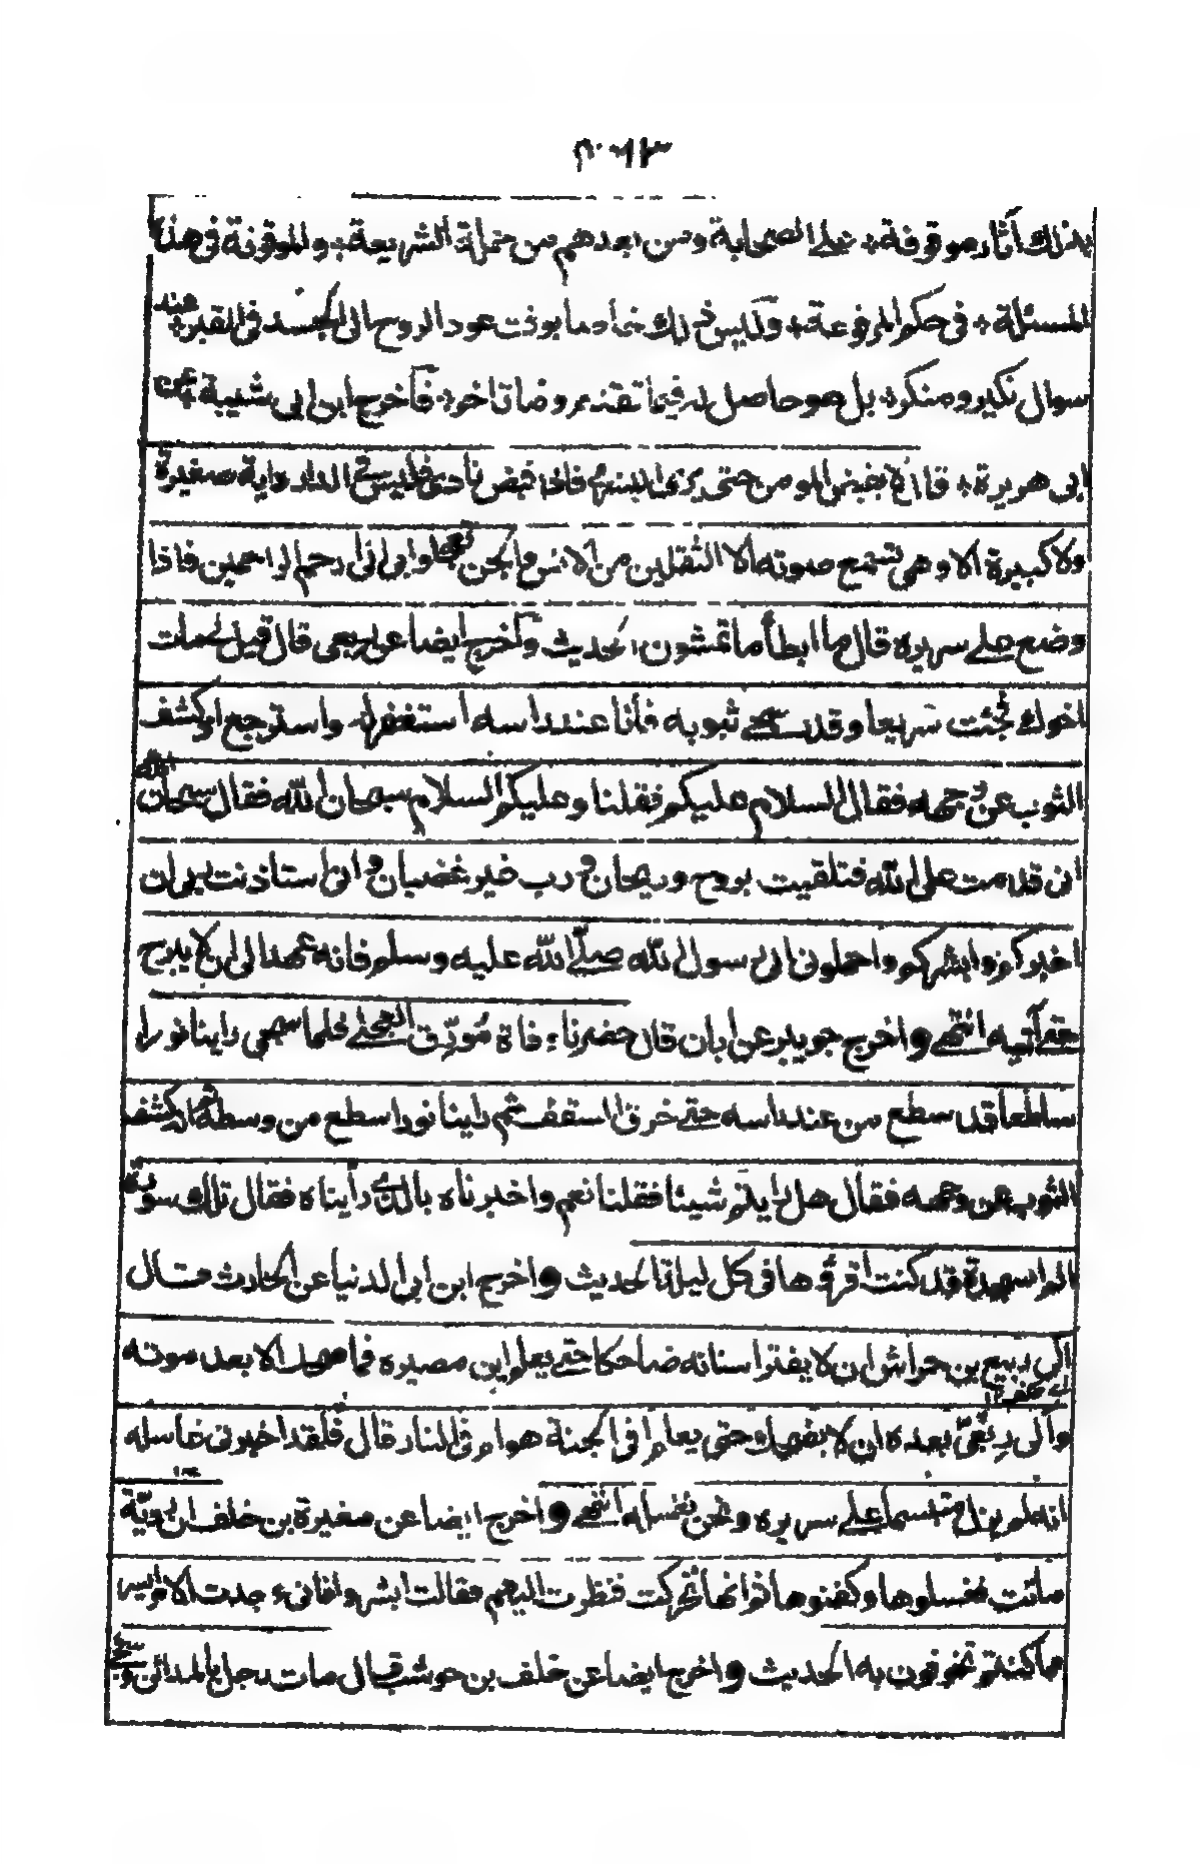 بذلك آثار موقوفة، على الصحابة ومن بعدهم من حملة الشريعة، والموقوفة في هذا
المسئلة، في حكم المرفوعة، وليس ذلك عود الروح الى الجسد في القبر عند
سوال نكير ومنكر، بل هو حاصل له فيما تقدم وما تاخر، فاخرج ابن ابي شيبة عن
ابي هريرة، قال لا يقبض المومن حتى يرى البشرى فاذا قبض نادى فليس في الدار دابة صغيرة
ولا كبيرة الا وهي تسمع صوته الا الثقلين من الانس والجن تعجلوا بي الى ارحم الراحمين فاذا
وضع على سريره قال ما ابطأ ما تمشون الحديث واخرج ايضا عن ربعي قال قيل لي مات
اخوك فجئت سريعا وقد سجي بثوبه فانا عند راسه استغفر له واسترجع اذ كشف
الثوب عن وجهه فقال السلام عليكم فقلنا وعليكم السلام سبحان الله فقال سبحان الله
اني قدمت على الله فتلقيت بروح وريحان ورب غير غضبان واني استاذنت ربي ان
اخبركم وابشركم واحملوني الى رسول الله صلى الله عليه وسلم فانه عهد الى ان لا يبرح
حتى آتيه انتهى واخرج جويبر عن ابان قال حضرنا وفاة مورّق العجلي فلما سجي راينا نورا
ساطعا قد سطع من عند راسه حتى خرق السقف ثم راينا نورا سطع من وسطه ثم انه كشف
الثوب عن وجهه فقال هل رايتم شيئا فقلنا نعم واخبرناه بالذي رأيناه فقال تلك سورة
الم السجدة قد كنت اقرؤها في كل ليلة الحديث واخرج ابن ابي الدنيا عن الحارث قال
الى ربيع بن حراش ان لا يفتر اسنانه ضاحكا حتى يعلم اين مصيره فما ضحك الا بعد موته
وآلى ربعيّ بعده ان لا يضحك حتى يعلم ا في الجنة هو ام في النار قال فلقد اخبرني غاسله
انه لم يزل متبسما على سريره ونحن نغسله انتهى واخرج ايضا عن مغيرة بن خلف ان رؤبة
ماتت فغسلوها وكفنوها ثم انها تحركت فنظرت اليهم فقالت ابشروا فاني وجدت الامر ايسر
مما كنتم تخوفون به الحديث واخرج ايضا عن خلف بن حوشب قال مات رجل بالمدائن وسجي